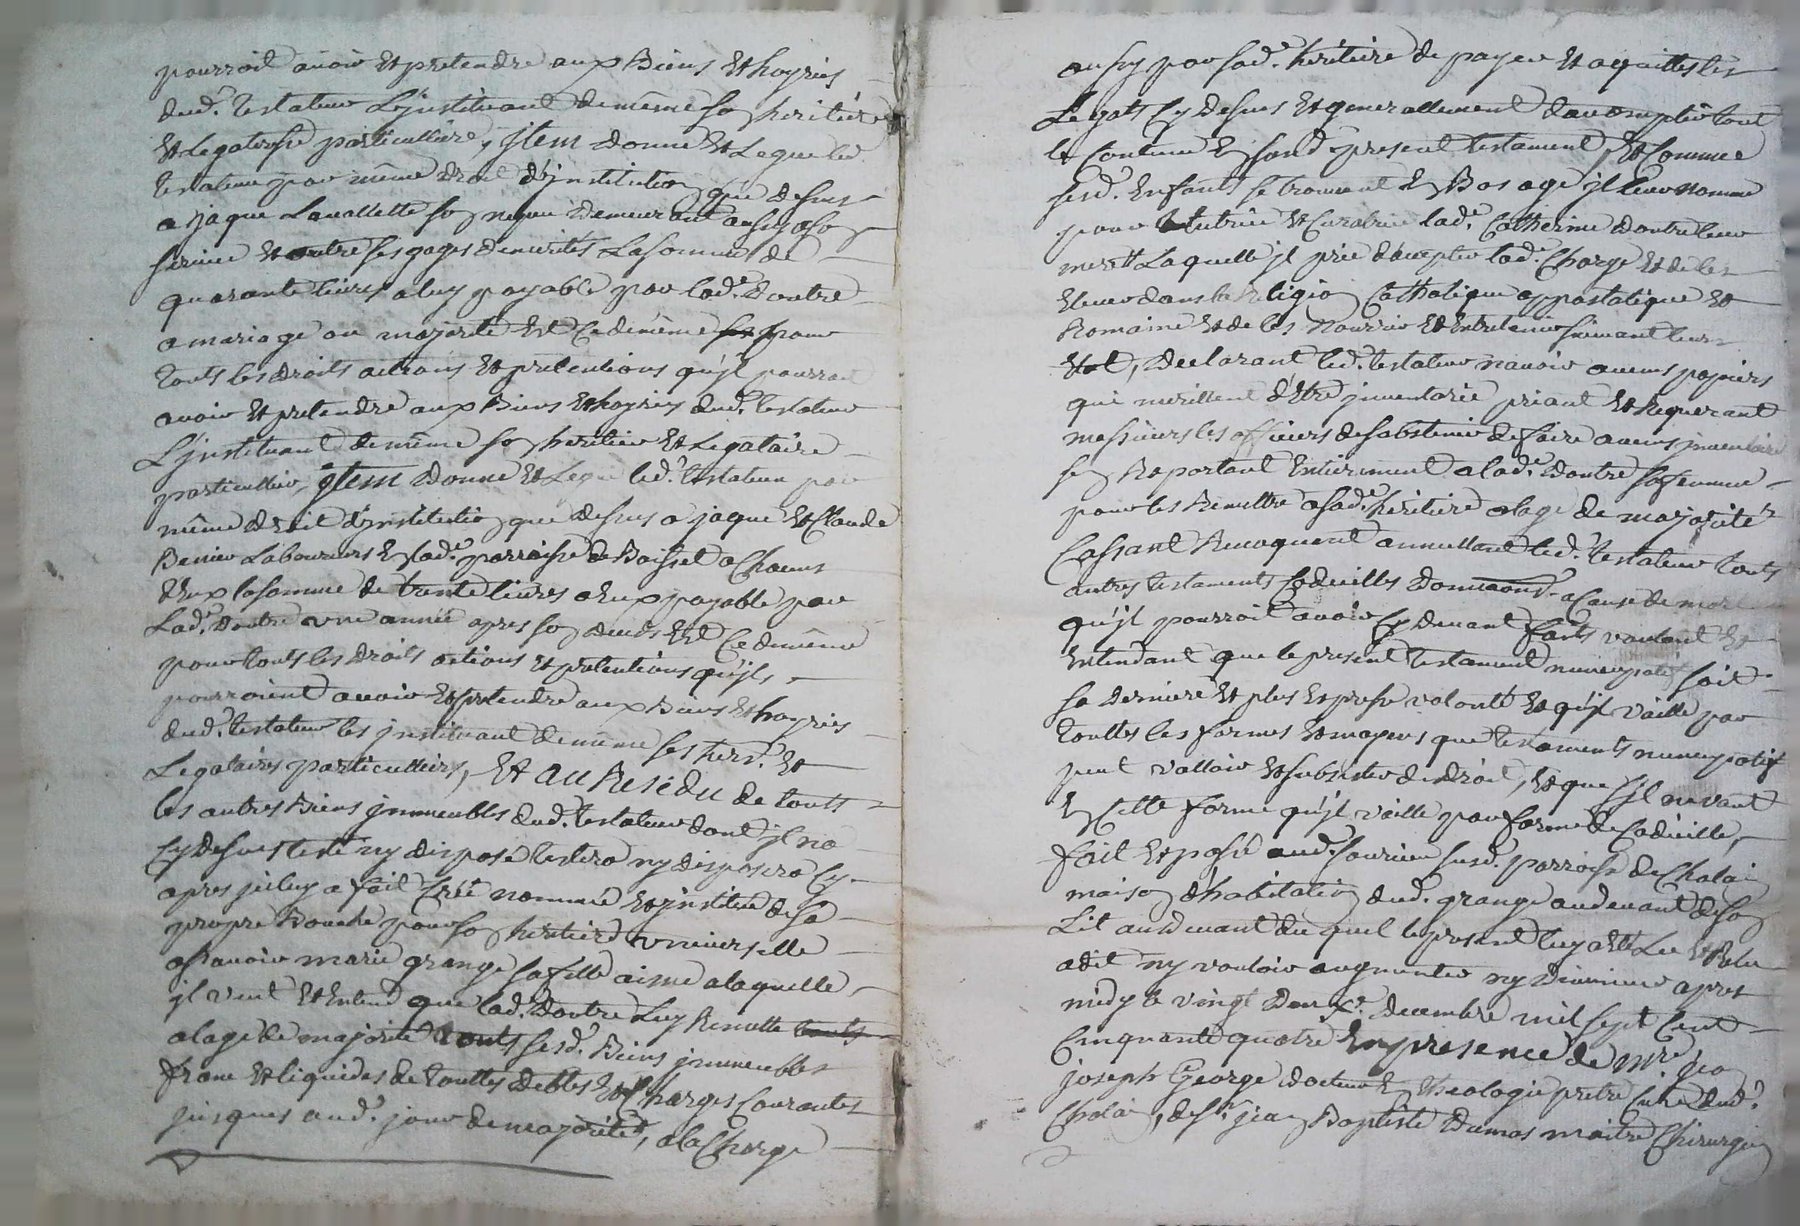 pourroit avoir Et pretendre aux Biens Et hoyries
dud.t Testateur L'jnstituant de même son heritiere
Et Legateresse particulliere, jtem donne Et Legue led.
Testateur par même droit d'jnstitution que dessus
a jaque Lavallette son neveu Demeurant aussy a son
service Et outre ses gages demerités La somme de
quarante livres a luy payable par lad.e Doutre
a mariage ou majorité Est Ce de même pour
touts les droits actions Et pretentions qu'jl pourroit
avoir Et pretendre aux Biens Et hoyries dud.t testateur
L'jnstituant de même son heritier Et Legataire
particullier, jtem Donne Et Legue led.t testateur par
même droit d'jnstitution que dessus a jaque Et Claude
Benier Laboureurs En lad.e parroisse de Boisset a Chacuns
d'Eux la somme de trente livres a Eux payable par
Lad.e Doutre une année apres son deceds Est Ce de même
pour touts les droits actions Et pretentions qu'jls
pourroient avoir Et pretendre aux Biens Et hoyries
dud.t testateur les jnstituant de même ses herd.s Et
Legataires particulliers, Et au Residu de touts
les autres Biens jmmeubles dud.t testateur dont jl na
Cy Dessus testé ny disposé testera ny disposera Cy
apres jceluy a fait Créé nommé Et jnstitué de sa
propre Bouche pour son heritiere universelle
assavoir marie grange sa fille aisnée a laquelle
jl veut Et Entend que lad.e Doutre Luy Remette touts
a l'age de majorité touts sesd.s Biens jmmeubles
franc Et liquides de touttes debtes Et Charges Courantes
jusques aud.t jour de majorité, a la Charge
aussy par sad.e héritiere de payer Et aquitter les
Legats Cy Dessus Et generallement d'accomplir tout
le Contenu En sond. present testament, Et Comme
sesd. Enfants se trouvent En Bas age jl leur nomme
pour tutrice Et Curatrice lad.e Catherine Doutre leur
mere Laquelle jl prie d'accepter lad.e Charge Et de les
Elever dans la Religion Catholique appostolique Et
Romaine Et de les Nourrir Et Entretenir suivant leurs
Etat, Declarant led.t testateur n'avoir aucuns papiers
qui merittent d'Etre jnventorié priant Et Requerant
messieurs les officiers de sabstenir de faire aucuns jnventaire
se Raportant Entierement a lad.e Doutre sa femme
pour les Remettre a sad.e héritiere a l'age de majorité
Cassant Revoquant annullant led.t testateur touts
autres testaments Codicilles Donnaons a Cause de mort
qu'jl pourroit avoir Cy devant faits voulant Et
Entendant que le present testament nuncupatif soit
sa derniere Et plus Expresse volonté Et qu'jl vaille par
touttes les formes Et moyens que testaments nuncupatif
peut valloir Et subsister de Droit, Et que s'jl ne vaut
En Cette forme qu'jl vaille par forme de Codicille,
fait Et passé aud.t susd. parroisse de Chalain
maison d'habitation dud.t grange au devant de son
Lit au devant du quel le present luy a Eté Lu Et Relu
a dit ny vouloir augmenter ny diminuer apres
midy le vingt Deux.e decembre mil sept Cent
Cinquante quatre En presence de m.re jean
joseph George docteur En Theologie pretre Curé dud.t
Chalain, de s.r jean Baptiste Dumas maitre Chirurgien